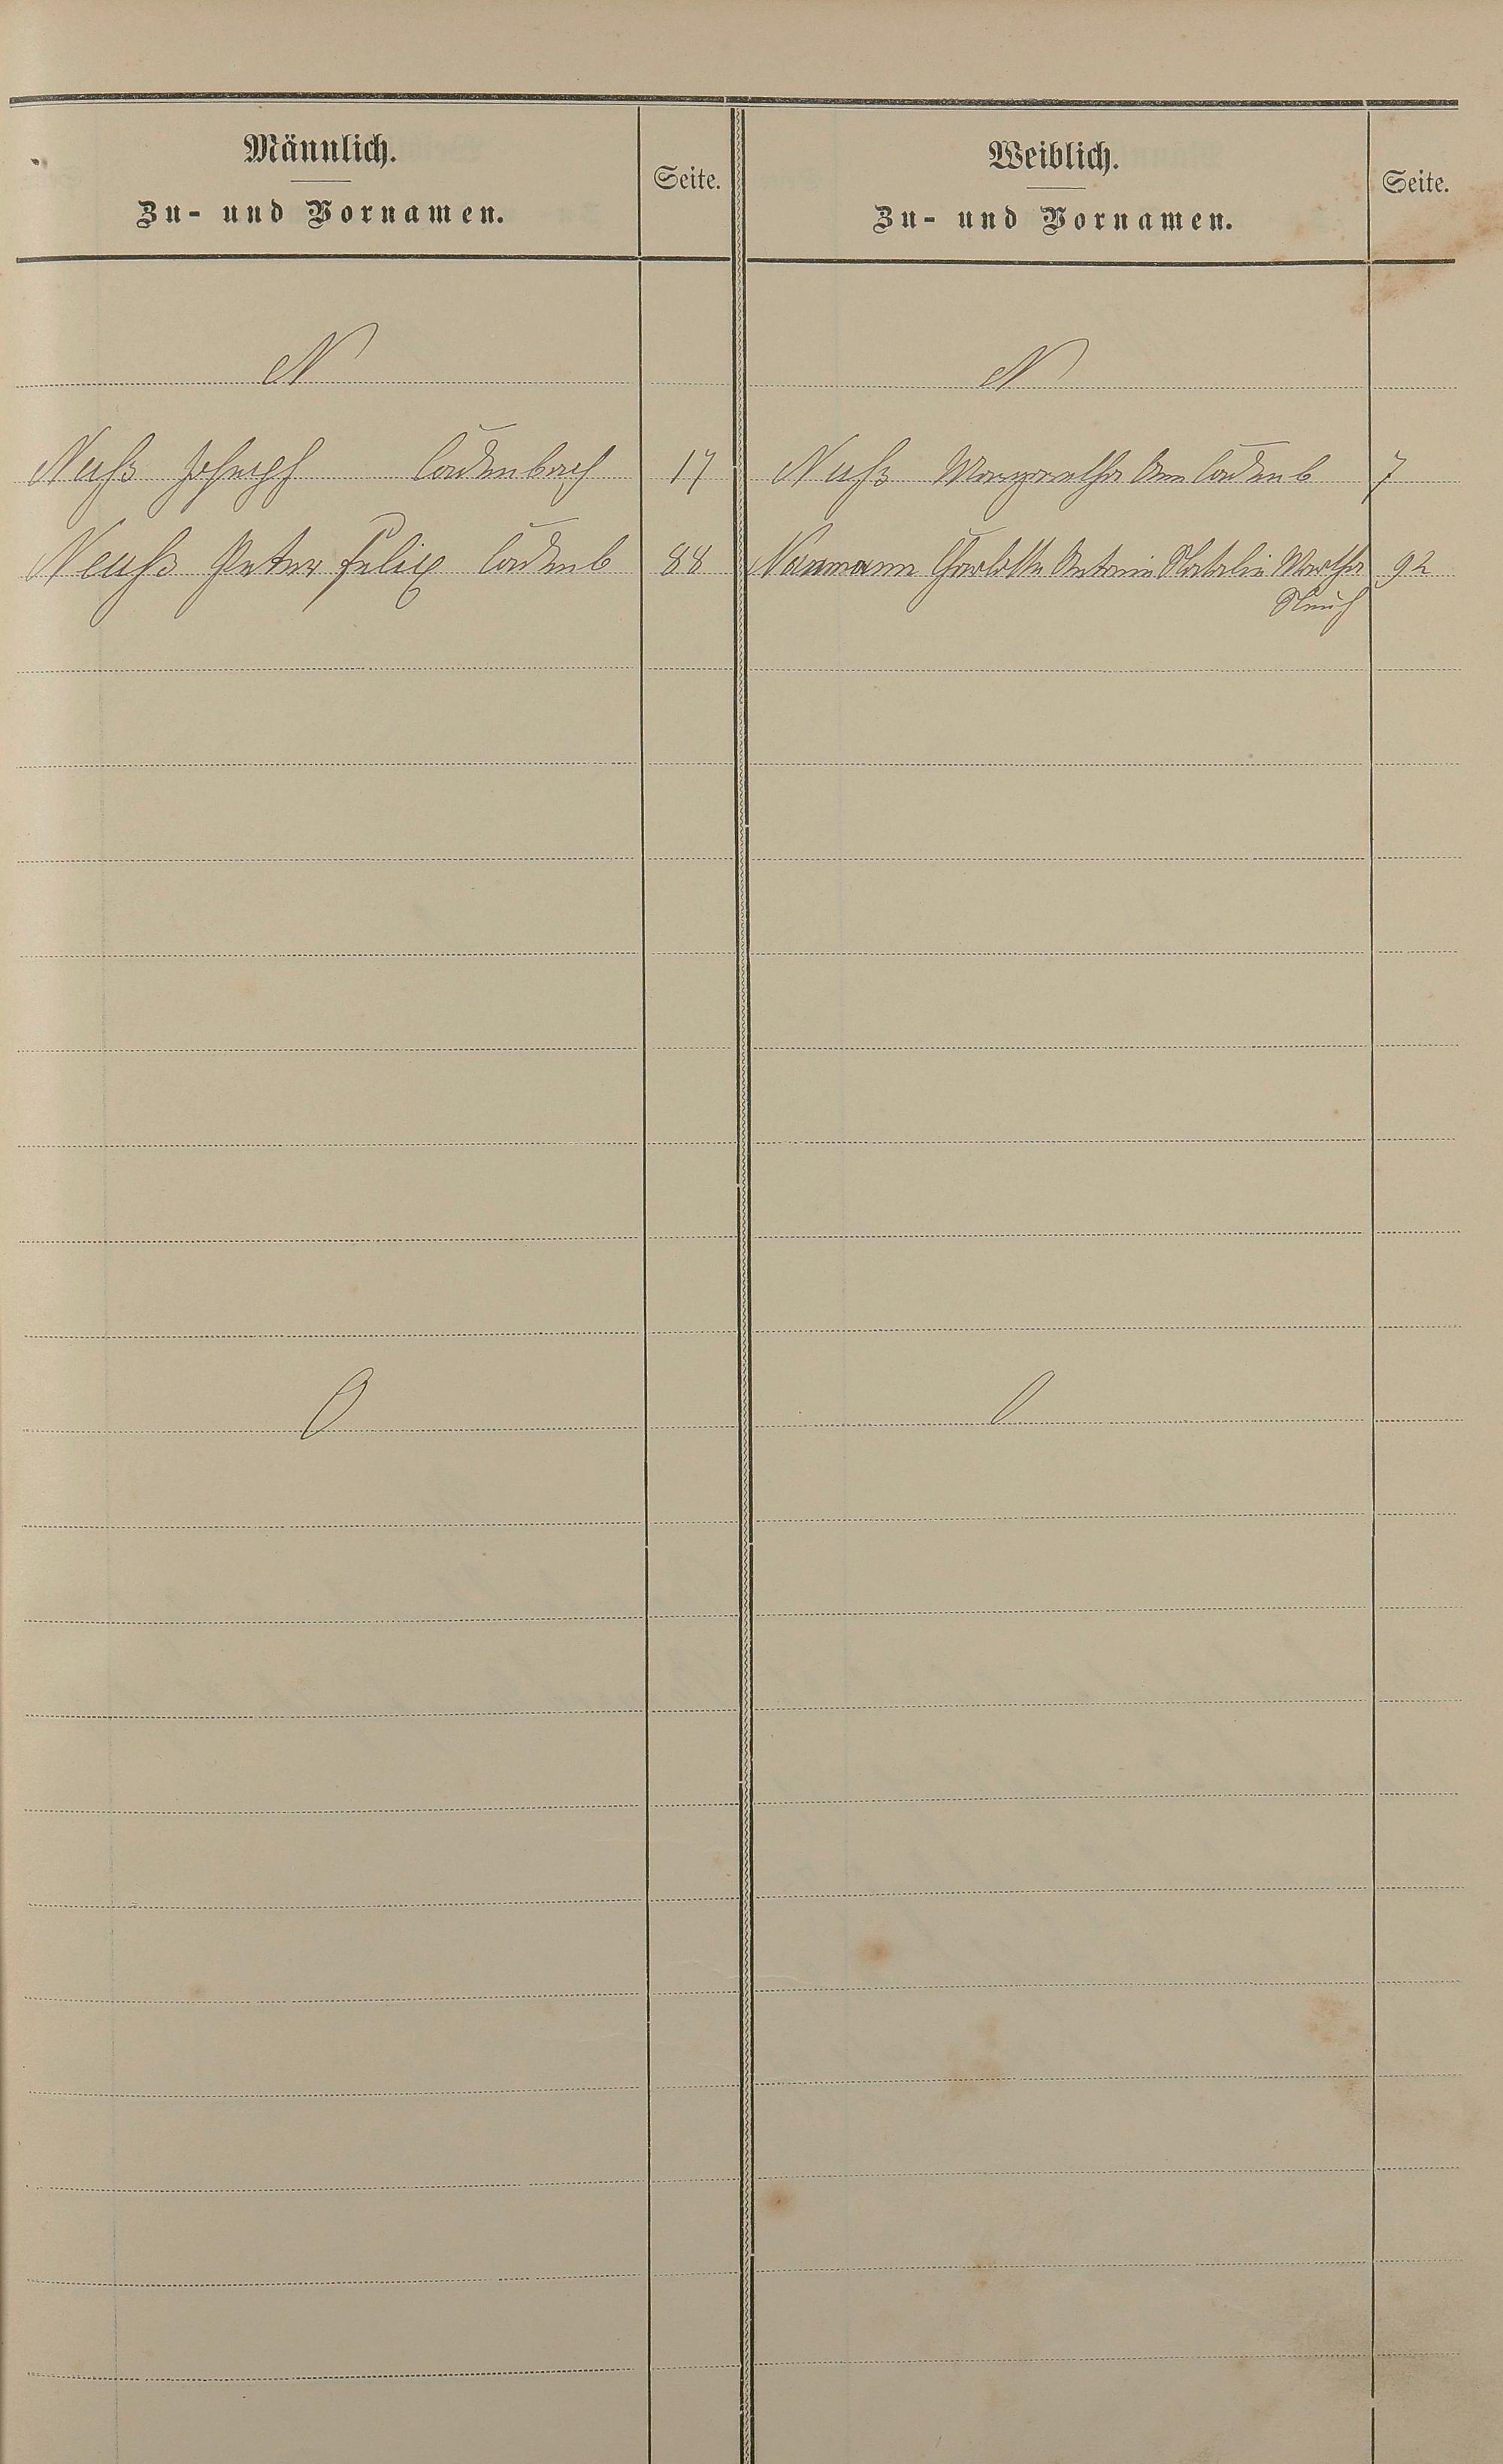 Männlich.
Zu- und Vornamen.
Seite.
Weiblich.
Zu- und Vornamen.
Seite.
N
N
Nuß Joseph Laudenbach 17
Nuß Margaretha Laudenb 7
Neuß Peter Felix Laudenb 88
Naumann Charlotte Antonie Natalie Martha 92
O
O